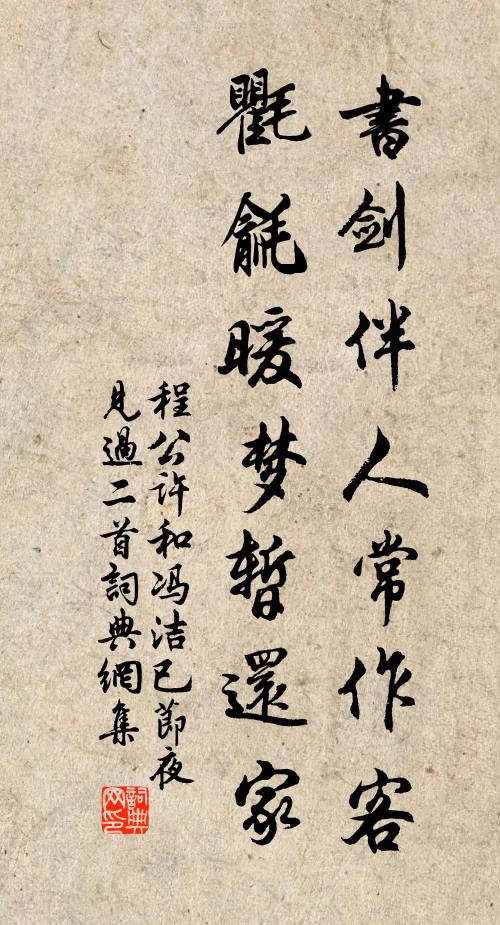 書劍伴人常作客
氍毹暖梦暫還家
程公許和冯洁己節夜
見過二首詞典網集
詞典网印